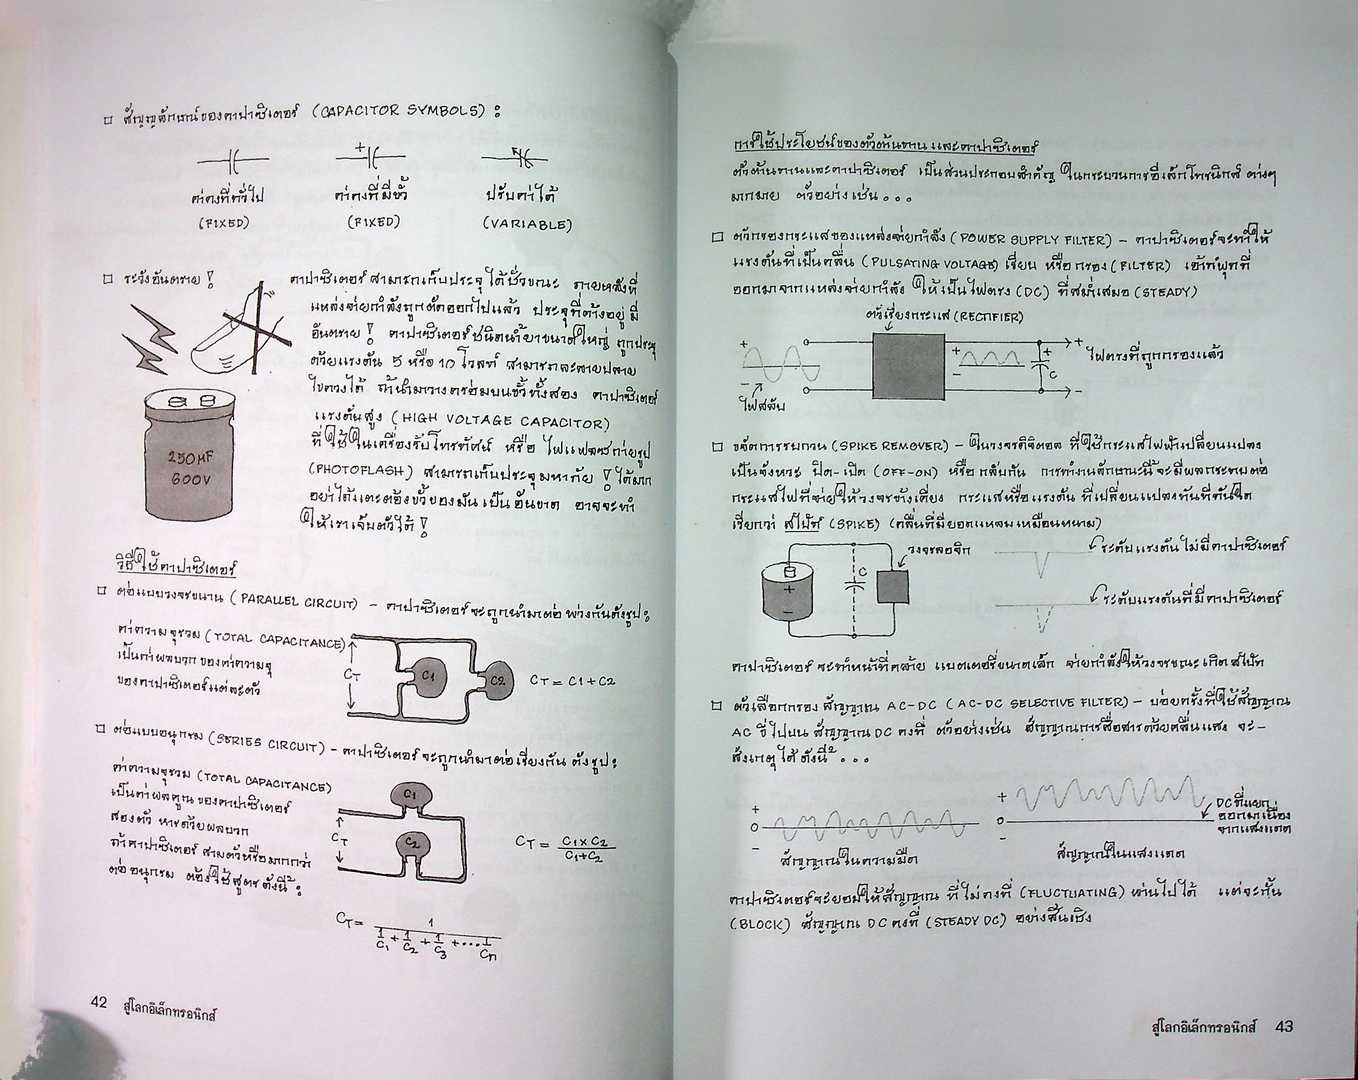 □ สัญญลักษณ์ของคาปาซิเตอร์ (CAPACITOR SYMBOLS) :
+
ค่าคงที่ทั่วไป
(FIXED)
ค่าคงที่มีขั้ว
(FIXED)
ปรับค่าได้
(VARIABLE)
□ ระวังอันตราย !
คาปาซิเตอร์สามารถเก็บประจุได้ชั่วขณะ ภายหลังที่
แหล่งจ่ายกำลังถูกตัดออกไปแล้ว ประจุที่ค้างอยู่มี
อันตราย ! คาปาซิเตอร์ชนิดน้ำยาขนาดใหญ่ ถูกประจุ
ด้วยแรงดัน 5 หรือ 10 โวลท์ สามารถละลายปลาย
ไขควงได้ ถ้านำมาวางคร่อมบนขั้วทั้งสอง คาปาซิเตอร์
แรงดันสูง (HIGH VOLTAGE CAPACITOR)
ที่ใช้ในเครื่องรับโทรทัศน์ หรือ ไฟแฟลชถ่ายรูป
(PHOTOFLASH) สามารถเก็บประจุมหาภัย ! ได้มาก
อย่าได้แตะต้องขั้วของมันเป็นอันขาด อาจจะทำ
ให้เราเจ็บตัวได้ !
250MF
600V
วิธีใช้คาปาซิเตอร์
□ ต่อแบบวงจรขนาน (PARALLEL CIRCUIT) - คาปาซิเตอร์จะถูกนำมาต่อ พ่วงกันดังรูป :
ค่าความจุรวม (TOTAL CAPACITANCE)
เป็นค่าผลบวกของค่าความจุ
ของคาปาซิเตอร์แต่ละตัว
CT
C1
C2
CT = C1 + C2
□ ต่อแบบอนุกรม (SERIES CIRCUIT) - คาปาซิเตอร์จะถูกนำมาต่อเรียงกัน ดังรูป :
ค่าความจุรวม (TOTAL CAPACITANCE)
เป็นค่าผลคูณของคาปาซิเตอร์
สองตัว หารด้วยผลบวก
ถ้าคาปาซิเตอร์ สามตัวหรือมากกว่า
ต่ออนุกรม ต้องใช้สูตรดังนี้ :
C1
C2
CT
CT = C1 x C2
C1 + C2
CT = 1
1/C1 + 1/C2 + 1/C3 + ... 1/Cn
42 สู่โลกอิเล็กทรอนิกส์
การใช้ประโยชน์ของตัวต้านทานและคาปาซิเตอร์
ตัวต้านทานและคาปาซิเตอร์ เป็นส่วนประกอบสำคัญ ในกระบวนการอีเล็กโทรนิกส์ ต่างๆ
มากมาย ตัวอย่างเช่น...
□ ตัวกรองกระแสของแหล่งจ่ายกำลัง (POWER SUPPLY FILTER) - คาปาซิเตอร์จะทำให้
แรงดันที่เป็นคลื่น (PULSATING VOLTAGE) เรียบ หรือ กรอง (FILTER) เอ้าท์พุทที่
ออกมาจากแหล่งจ่ายกำลัง ให้เป็นไฟตรง (DC) ที่สม่ำเสมอ (STEADY)
ตัวเรียงกระแส (RECTIFIER)
+
-
ไฟสลับ
+
-
+
C
+
-
ไฟตรงที่ถูกกรองแล้ว
□ ขจัดการรบกวน (SPIKE REMOVER) - ในวงจรดิจิตอล ที่ใช้กระแสไฟฟ้าเปลี่ยนแปลง
เป็นจังหวะ ปิด-เปิด (OFF-ON) หรือ กลับกัน การทำงานลักษณะนี้จะมีผลกระทบต่อ
กระแสไฟที่จ่ายให้วงจรข้างเคียง กระแสหรือแรงดัน ที่เปลี่ยนแปลงทันทีทันใด
เรียกว่า สไปค์ (SPIKE) (คลื่นที่มียอดแหลมเหมือนหนาม)
+
-
C
วงจรลอจิก
ระดับแรงดันไม่มีคาปาซิเตอร์
ระดับแรงดันที่มีคาปาซิเตอร์
คาปาซิเตอร์ จะทำหน้าที่คล้าย แบตเตอรี่ขนาดเล็ก จ่ายกำลังให้วงจรขณะเกิดสไปค์
□ ตัวเลือกกรอง สัญญาณ AC-DC (AC-DC SELECTIVE FILTER) - บ่อยครั้งที่ใช้สัญญาณ
AC ขี่ไปบน สัญญาณ DC คงที่ ตัวอย่างเช่น สัญญาณการสื่อสารด้วยคลื่นแสง จะ-
สังเกตุได้ดังนี้ ...
+
O
-
สัญญาณในความมืด
+
O
-
DC ที่แยก
ออกมาเนื่อง
จากแสงแดด
สัญญาณในแสงแดด
คาปาซิเตอร์จะยอมให้สัญญาณ ที่ไม่คงที่ (FLUCTUATING) ผ่านไปได้ แต่จะกั้น
(BLOCK) สัญญาณ DC คงที่ (STEADY DC) อย่างสิ้นเชิง
สู่โลกอิเล็กทรอนิกส์ 43